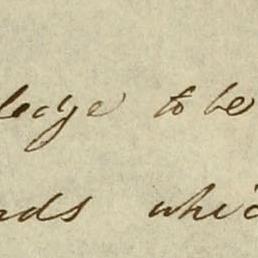 ledge to be
nds whic